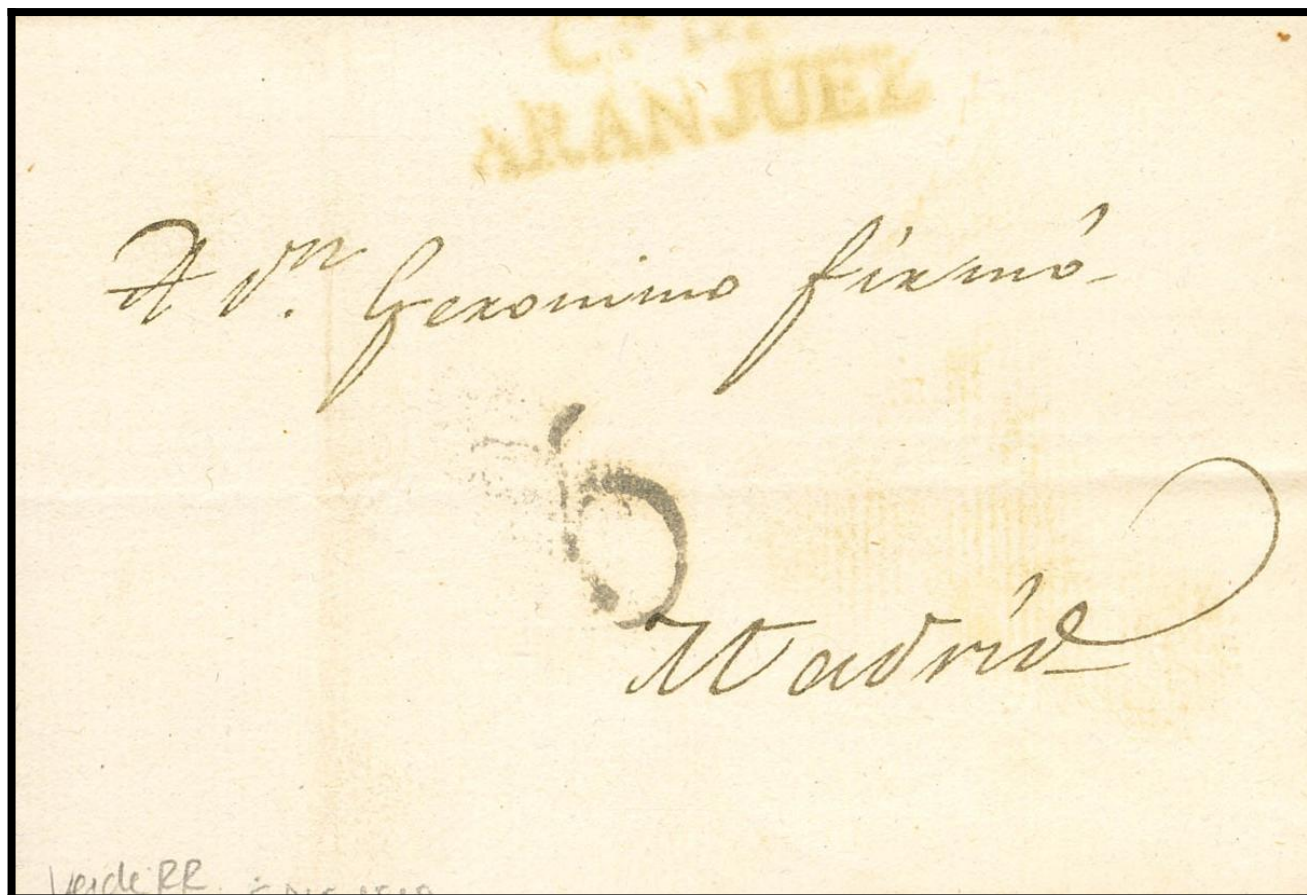 ARANJUEZ
A Dn. Geronimo firmó
6
Madrid
Verde RR